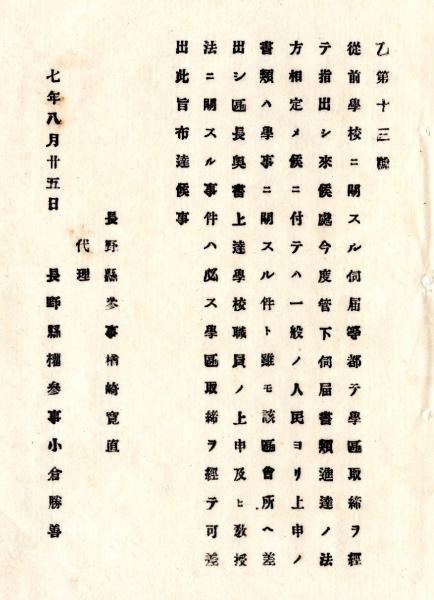 乙第十三號
從前學校ニ關スル伺届等都テ學區取締ヲ經
テ指出シ來候處今度管下伺届書類進達ノ法
方相定メ候ニ付テハ一般ノ人民ヨリ上申ノ
書類ハ學事ニ關スル件ト雖モ該區會所ヘ差
出シ區長奥書上達學校職員ノ上申及ヒ敎授
法ニ關スル事件ハ必ス學區取締ヲ經テ可差
出此旨布達候事
長野縣參事楢崎寛直
代理
長野縣權參事小倉勝善
七年八月廿五日